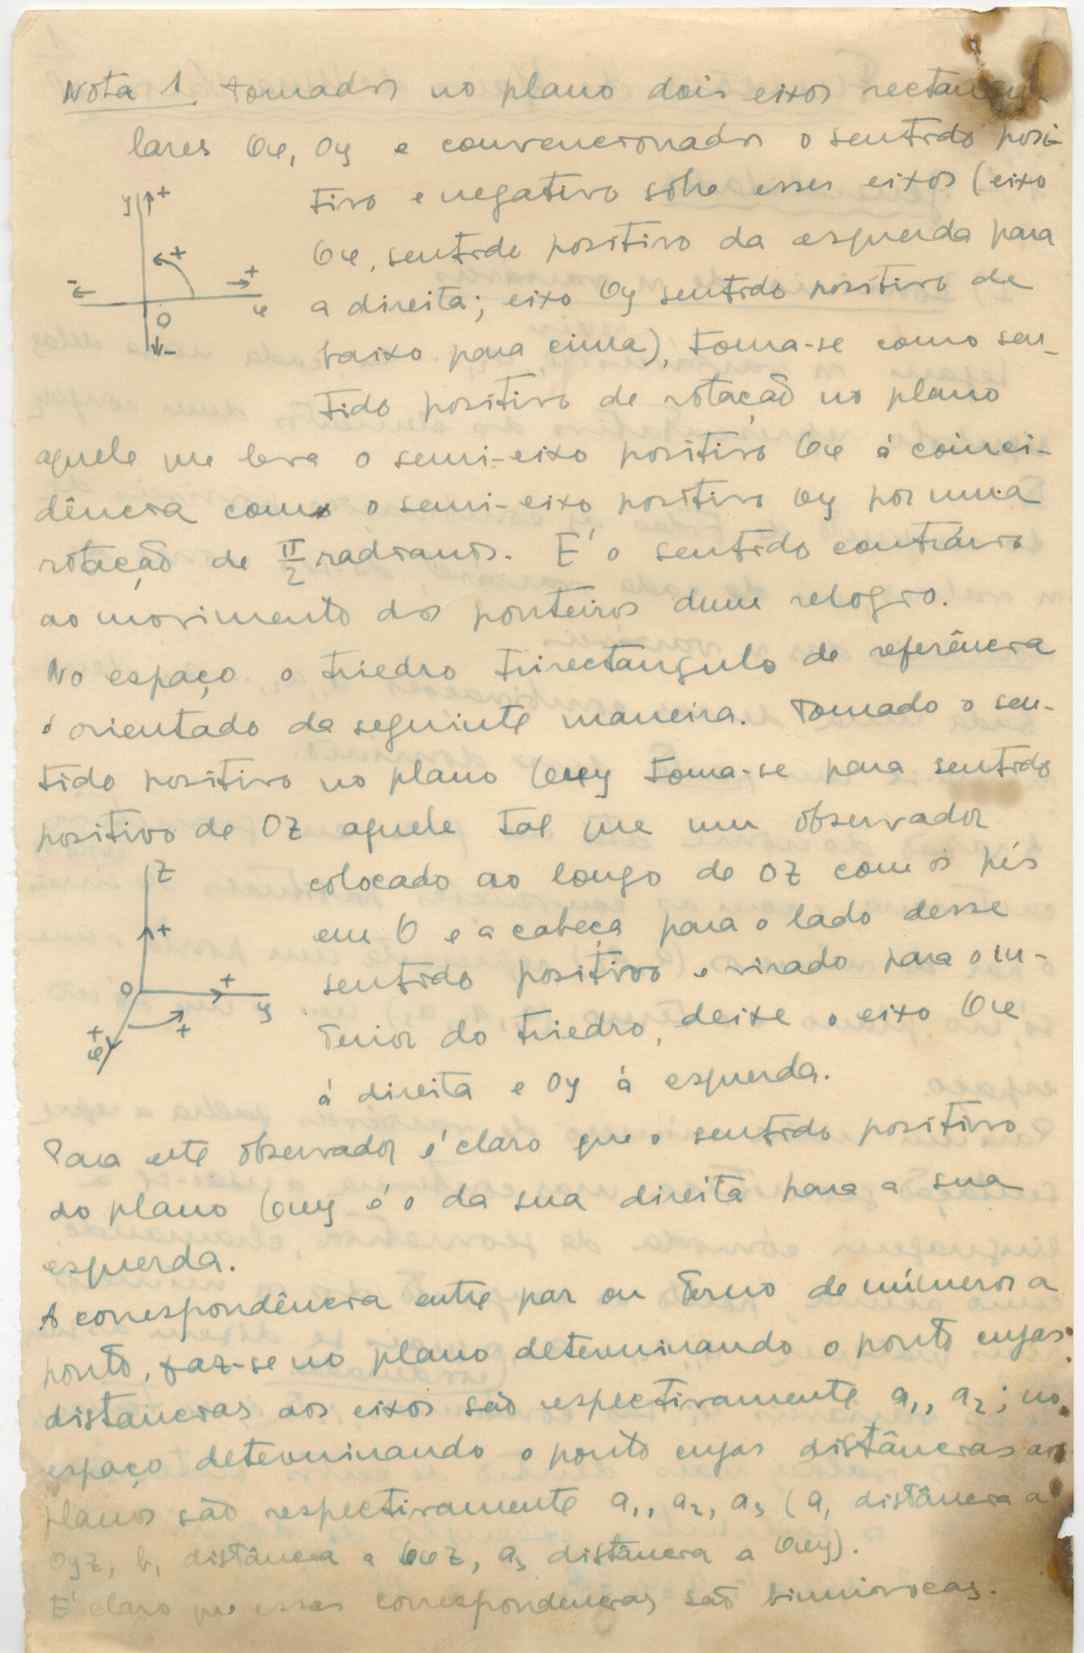 Nota 1. Tomados no plano dois eixos rectangu-
lares Ox, Oy e convencionado o sentido posi-
tivo e negativo sôbre esses eixos (eixo
Ox, sentido positivo da esquerda para
a direita; eixo Oy sentido positivo de
baixo para cima), toma-se como sen-
tido positivo de rotação no plano
aquele que leva o semi-eixo positivo Ox à coinci-
dência com o semi-eixo positivo Oy por uma
rotação de π/2 radianos. E' o sentido contrário
ao movimento dos ponteiros dum relogio.
No espaço o triedro trirectangulo de referência
é orientado da seguinte maneira. Tomado o sen-
tido positivo no plano Oxy toma-se para sentido
positivo de OZ aquele tal que um observador
colocado ao longo de OZ com os pés
em O e a cabeça para o lado desse
sentido positivo e virado para o in-
terior do triedro, deixe o eixo Ox
à direita e Oy à esquerda.
Para este observador é claro que o sentido positivo
do plano Oxy é o da sua direita para a sua
esquerda.
A correspondência entre par ou terno de números a
ponto, faz-se no plano determinando o ponto cujas
distancias aos eixos são respectivamente a₁, a₂; no
espaço determinando o ponto cujas distâncias aos
planos são respectivamente a₁, a₂, a₃ (a₁ distância a
Oyz, b₁ distância a Oxz, a₃ distância a Oxy).
E' claro que essas correspondencias são biunivocas.
y +
+
- +
O x
-
Z
+
O + y
+ x +